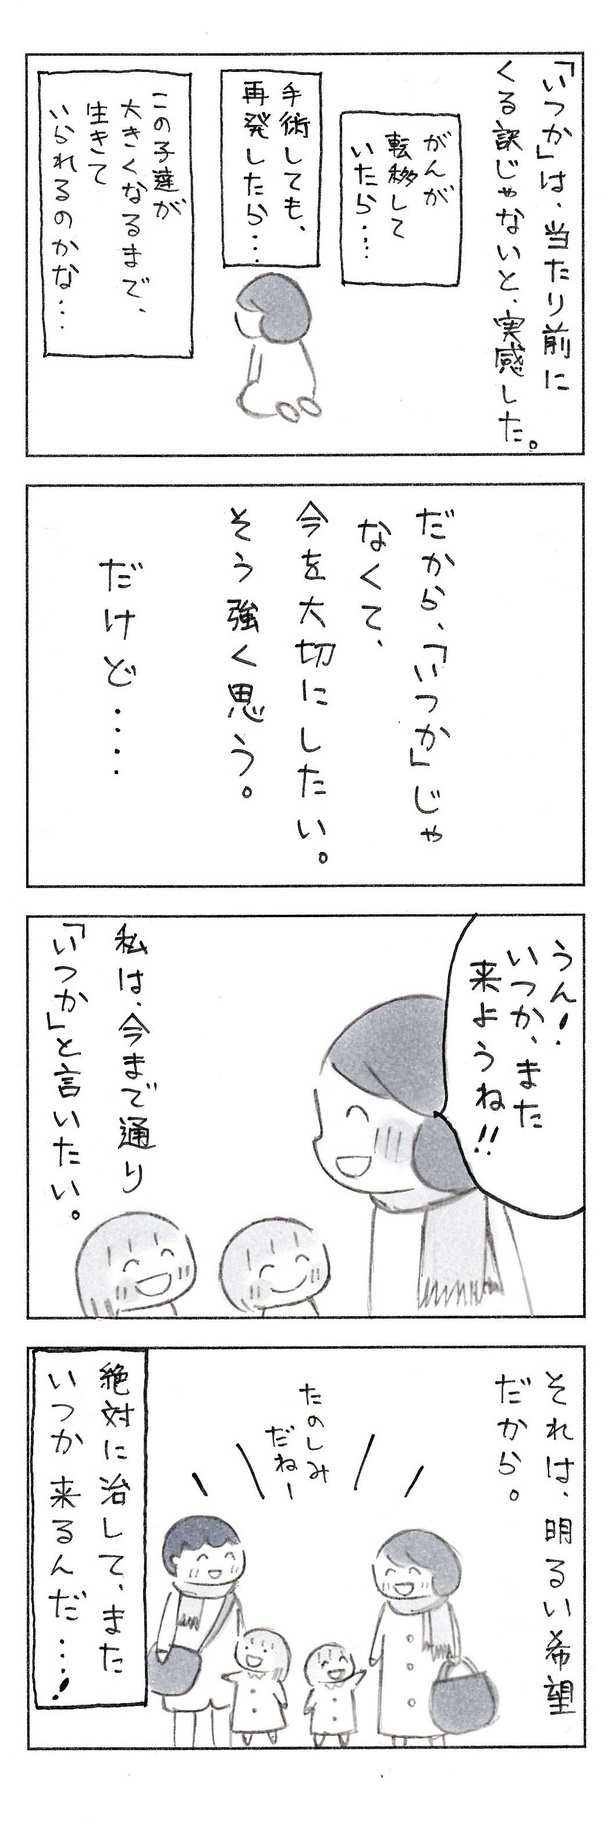 「いつか」は、当たり前に
くる訳じゃないと、実感した。
がんが
転移して
いたら…
手術しても、
再発したら…
この子達が
大きくなるまで、
生きて
いられるのかな…
だから、「いつか」じゃ
なくて、
今を大切にしたい。
そう強く思う。
だけど‥‥
うん!
いつか、また
来ようね!!
私は、今まで通り
「いつか」と言いたい。
それは、明るい希望
だから。
たのしみ
だねー
絶対に治して、また
いつか来るんだ…!